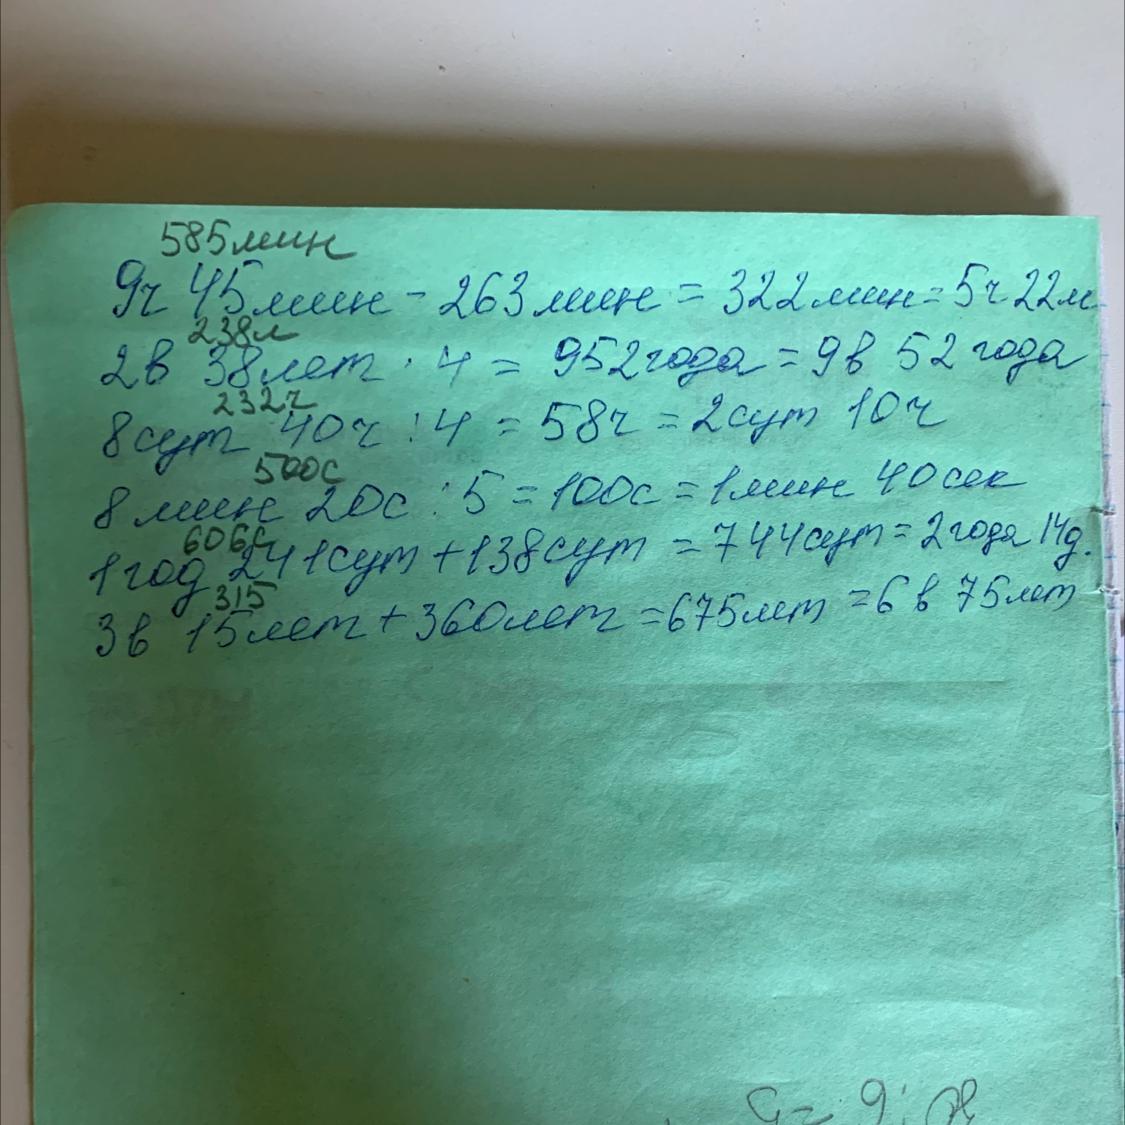 585мин
9ч 45мин - 263мин = 322мин = 5ч 22м
238л
2в 38лет · 4 = 952года = 9в 52года
232ч
8сут 40ч : 4 = 58ч = 2сут 10ч
500с
8мин 20с : 5 = 100с = 1мин 40сек
606с
1год 241сут + 138сут = 744сут = 2года 14д.
315
3в 15лет + 360лет = 675лет = 6в 75лет